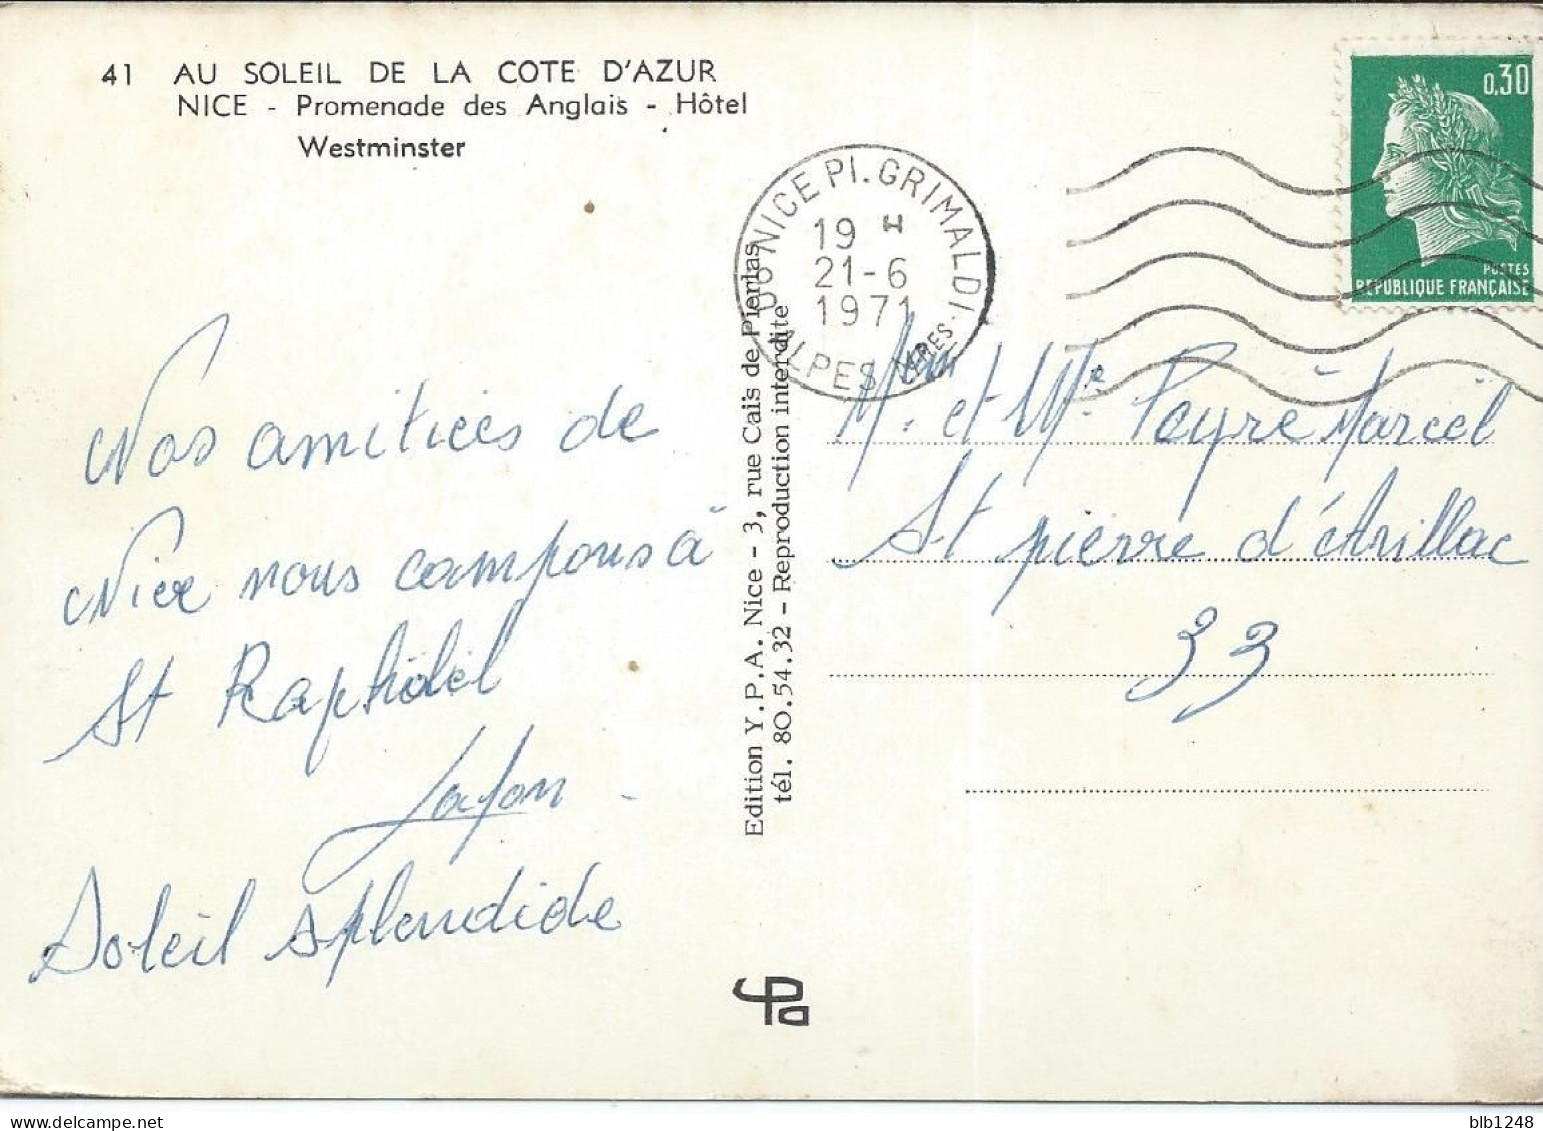 41 AU SOLEIL DE LA COTE D'AZUR
NICE - Promenade des Anglais - Hôtel
Westminster
0,30
POSTES
REPUBLIQUE FRANÇAISE
06 NICE PL. GRIMALDI
19 H
21-6
1971
ALPES MMES
Nos amitiées de
Nice nous campons à
St Raphäel
Lafon
Soleil splendide
Edition Y.P.A. Nice - 3, rue Cais de Pierlas
tél. 80.54.32 - Reproduction interdite
M. et Me Peyré Marcel
St pierre d'Aurillac
33
blb1248